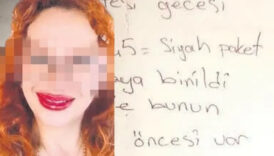 esi gecesi
45= Siyah paket
aya binildi
e bunun
öncesi var